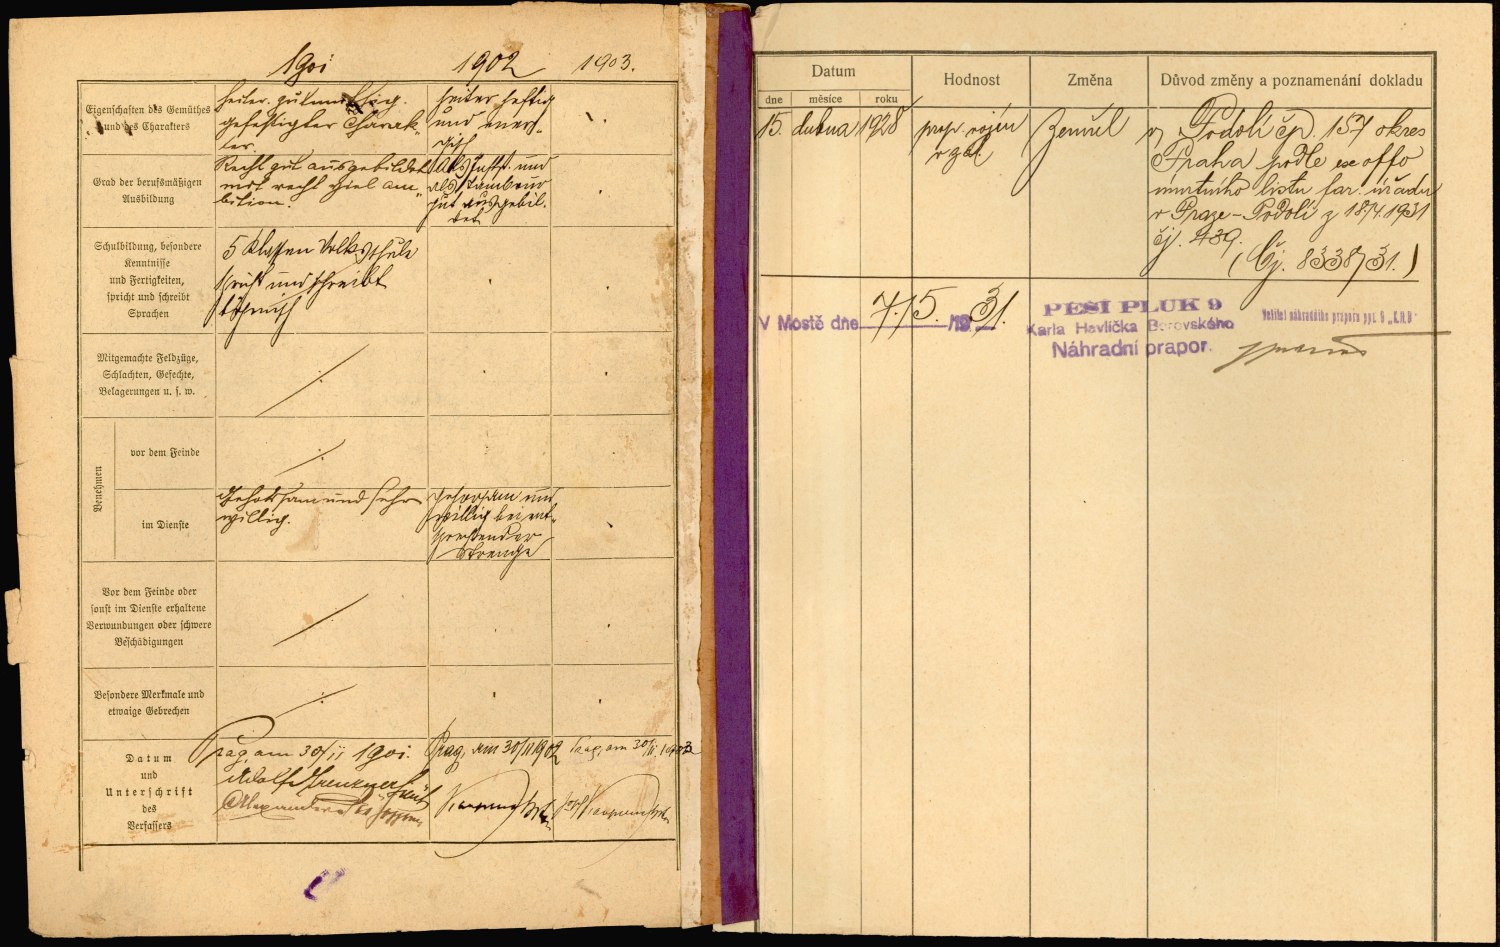 1901 1902 1903.
Eigenschaften des Gemüthes
und des Charakters
heiter, gutmüthig.
gefestigter Charak-
ter.
heiter, heftig
und ener-
gisch
Grad der berufsmäßigen
Ausbildung
Recht gut ausgebildet
mit recht viel am-
bition.
und
als Tambour
gut ausgebil-
det
Schulbildung, besondere
Kenntnisse
und Fertigkeiten,
spricht und schreibt
Sprachen
5 Klassen Volksschule
spricht und schreibt
böhmisch
Mitgemachte Feldzüge,
Schlachten, Gefechte,
Belagerungen u. s. w.
Benehmen
vor dem Feinde
im Dienste
Gehorsam und sehr
willig.
gehorsam und
willig bei ent-
sprechender
Strenge
Vor dem Feinde oder
sonst im Dienste erhaltene
Verwundungen oder schwere
Beschädigungen
Besondere Merkmale und
etwaige Gebrechen
Datum
und
Unterschrift
des
Verfassers
Prag, am 30/11 1901.
Adolf
Prag, am 30/11 1902
Prag, am 30/11 1903
Datum
dne měsíce roku
Hodnost
Změna
Důvod změny a poznamenání dokladu
15. dubna 1928
prop. vojín
v zál.
Zemřel
v Podolí čp. 157 okres
Praha podle ex offo
úmrtního listu far. úřadu
v Praze-Podolí z 18./4. 1931
čj. 439.
(Čj. 8338/31.)
V Mostě dne 7./5. 1931.
PĚŠÍ PLUK 9
Karla Havlíčka Borovského
Náhradní prapor.
Velitel náhradního praporu ppl. 9 „K.H.B“